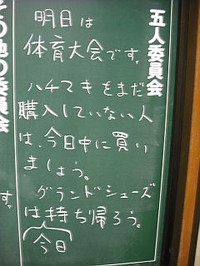 五人委員会
明日は
体育大会です。
ハチマキをまだ
購入していない人
は、今日中に買い
ましょう。
グランドシューズ
は持ち帰ろう。
今日
の委員会
す。